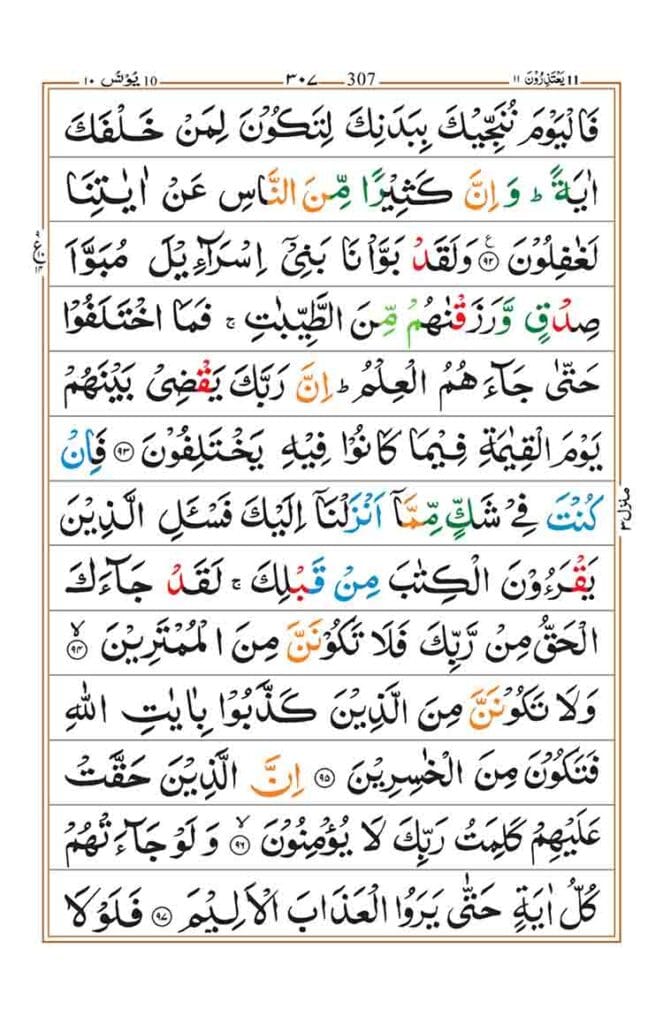 ١١ يَعْتَذِرُوْنَ 11
٣٠٧ 307
10 يُوْنُس ١٠
فَالْيَوْمَ نُنَجِّيْكَ بِبَدَنِكَ لِتَكُوْنَ لِمَنْ خَلْفَكَ
اٰيَةً ؕ وَ اِنَّ كَثِيْرًا مِّنَ النَّاسِ عَنْ اٰيٰتِنَا
لَغٰفِلُوْنَ ﴿٩٢﴾ ع وَلَقَدْ بَوَّاْنَا بَنِیْۤ اِسْرَآءِيْلَ مُبَوَّاَ
صِدْقٍ وَّرَزَقْنٰهُمْ مِّنَ الطَّيِّبٰتِ ۚ فَمَا اخْتَلَفُوْا
حَتّٰى جَآءَهُمُ الْعِلْمُ ؕ اِنَّ رَبَّكَ يَقْضِیْ بَيْنَهُمْ
يَوْمَ الْقِيٰمَةِ فِيْمَا كَانُوْا فِيْهِ يَخْتَلِفُوْنَ ﴿٩٣﴾ فَاِنْ
كُنْتَ فِیْ شَكٍّ مِّمَّاۤ اَنْزَلْنَاۤ اِلَيْكَ فَسْـَٔلِ الَّذِيْنَ
يَقْرَءُوْنَ الْكِتٰبَ مِنْ قَبْلِكَ ۚ لَقَدْ جَآءَكَ
الْحَقُّ مِنْ رَّبِّكَ فَلَا تَكُوْنَنَّ مِنَ الْمُمْتَرِيْنَ ۙ﴿٩٤﴾
وَلَا تَكُوْنَنَّ مِنَ الَّذِيْنَ كَذَّبُوْا بِاٰيٰتِ اللّٰهِ
فَتَكُوْنَ مِنَ الْخٰسِرِيْنَ ﴿٩٥﴾ اِنَّ الَّذِيْنَ حَقَّتْ
عَلَيْهِمْ كَلِمَتُ رَبِّكَ لَا يُؤْمِنُوْنَ ۙ﴿٩٦﴾ وَلَوْ جَآءَتْهُمْ
كُلُّ اٰيَةٍ حَتّٰى يَرَوُا الْعَذَابَ الْاَلِيْمَ ﴿٩٧﴾ فَلَوْلَا
منزل ٣